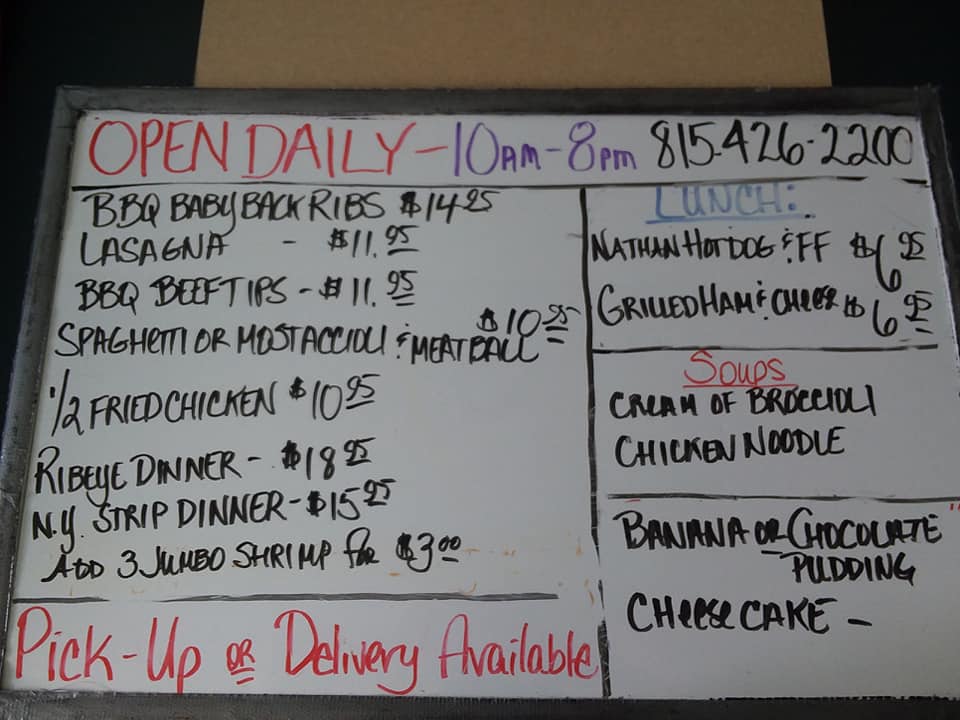 OPEN DAILY - 10AM - 8PM 815-426-2200
BBQ BABY BACK RIBS $14.95
LASAGNA - $11.95
BBQ BEEF TIPS - $11.95
SPAGHETTI OR MOSTACCIOLI & MEATBALL $10.95
1/2 FRIED CHICKEN $10.95
RIBEYE DINNER - $18.95
N.Y. STRIP DINNER - $15.95
ADD 3 JUMBO SHRIMP FOR $3.00
Pick-Up OR Delivery Available
LUNCH:
NATHAN HOT DOG & FF $6.95
GRILLED HAM & CHEESE $6.95
SOUPS
CREAM OF BROCCIOLI
CHICKEN NOODLE
BANANA OR CHOCOLATE
PUDDING
CHEESE CAKE -